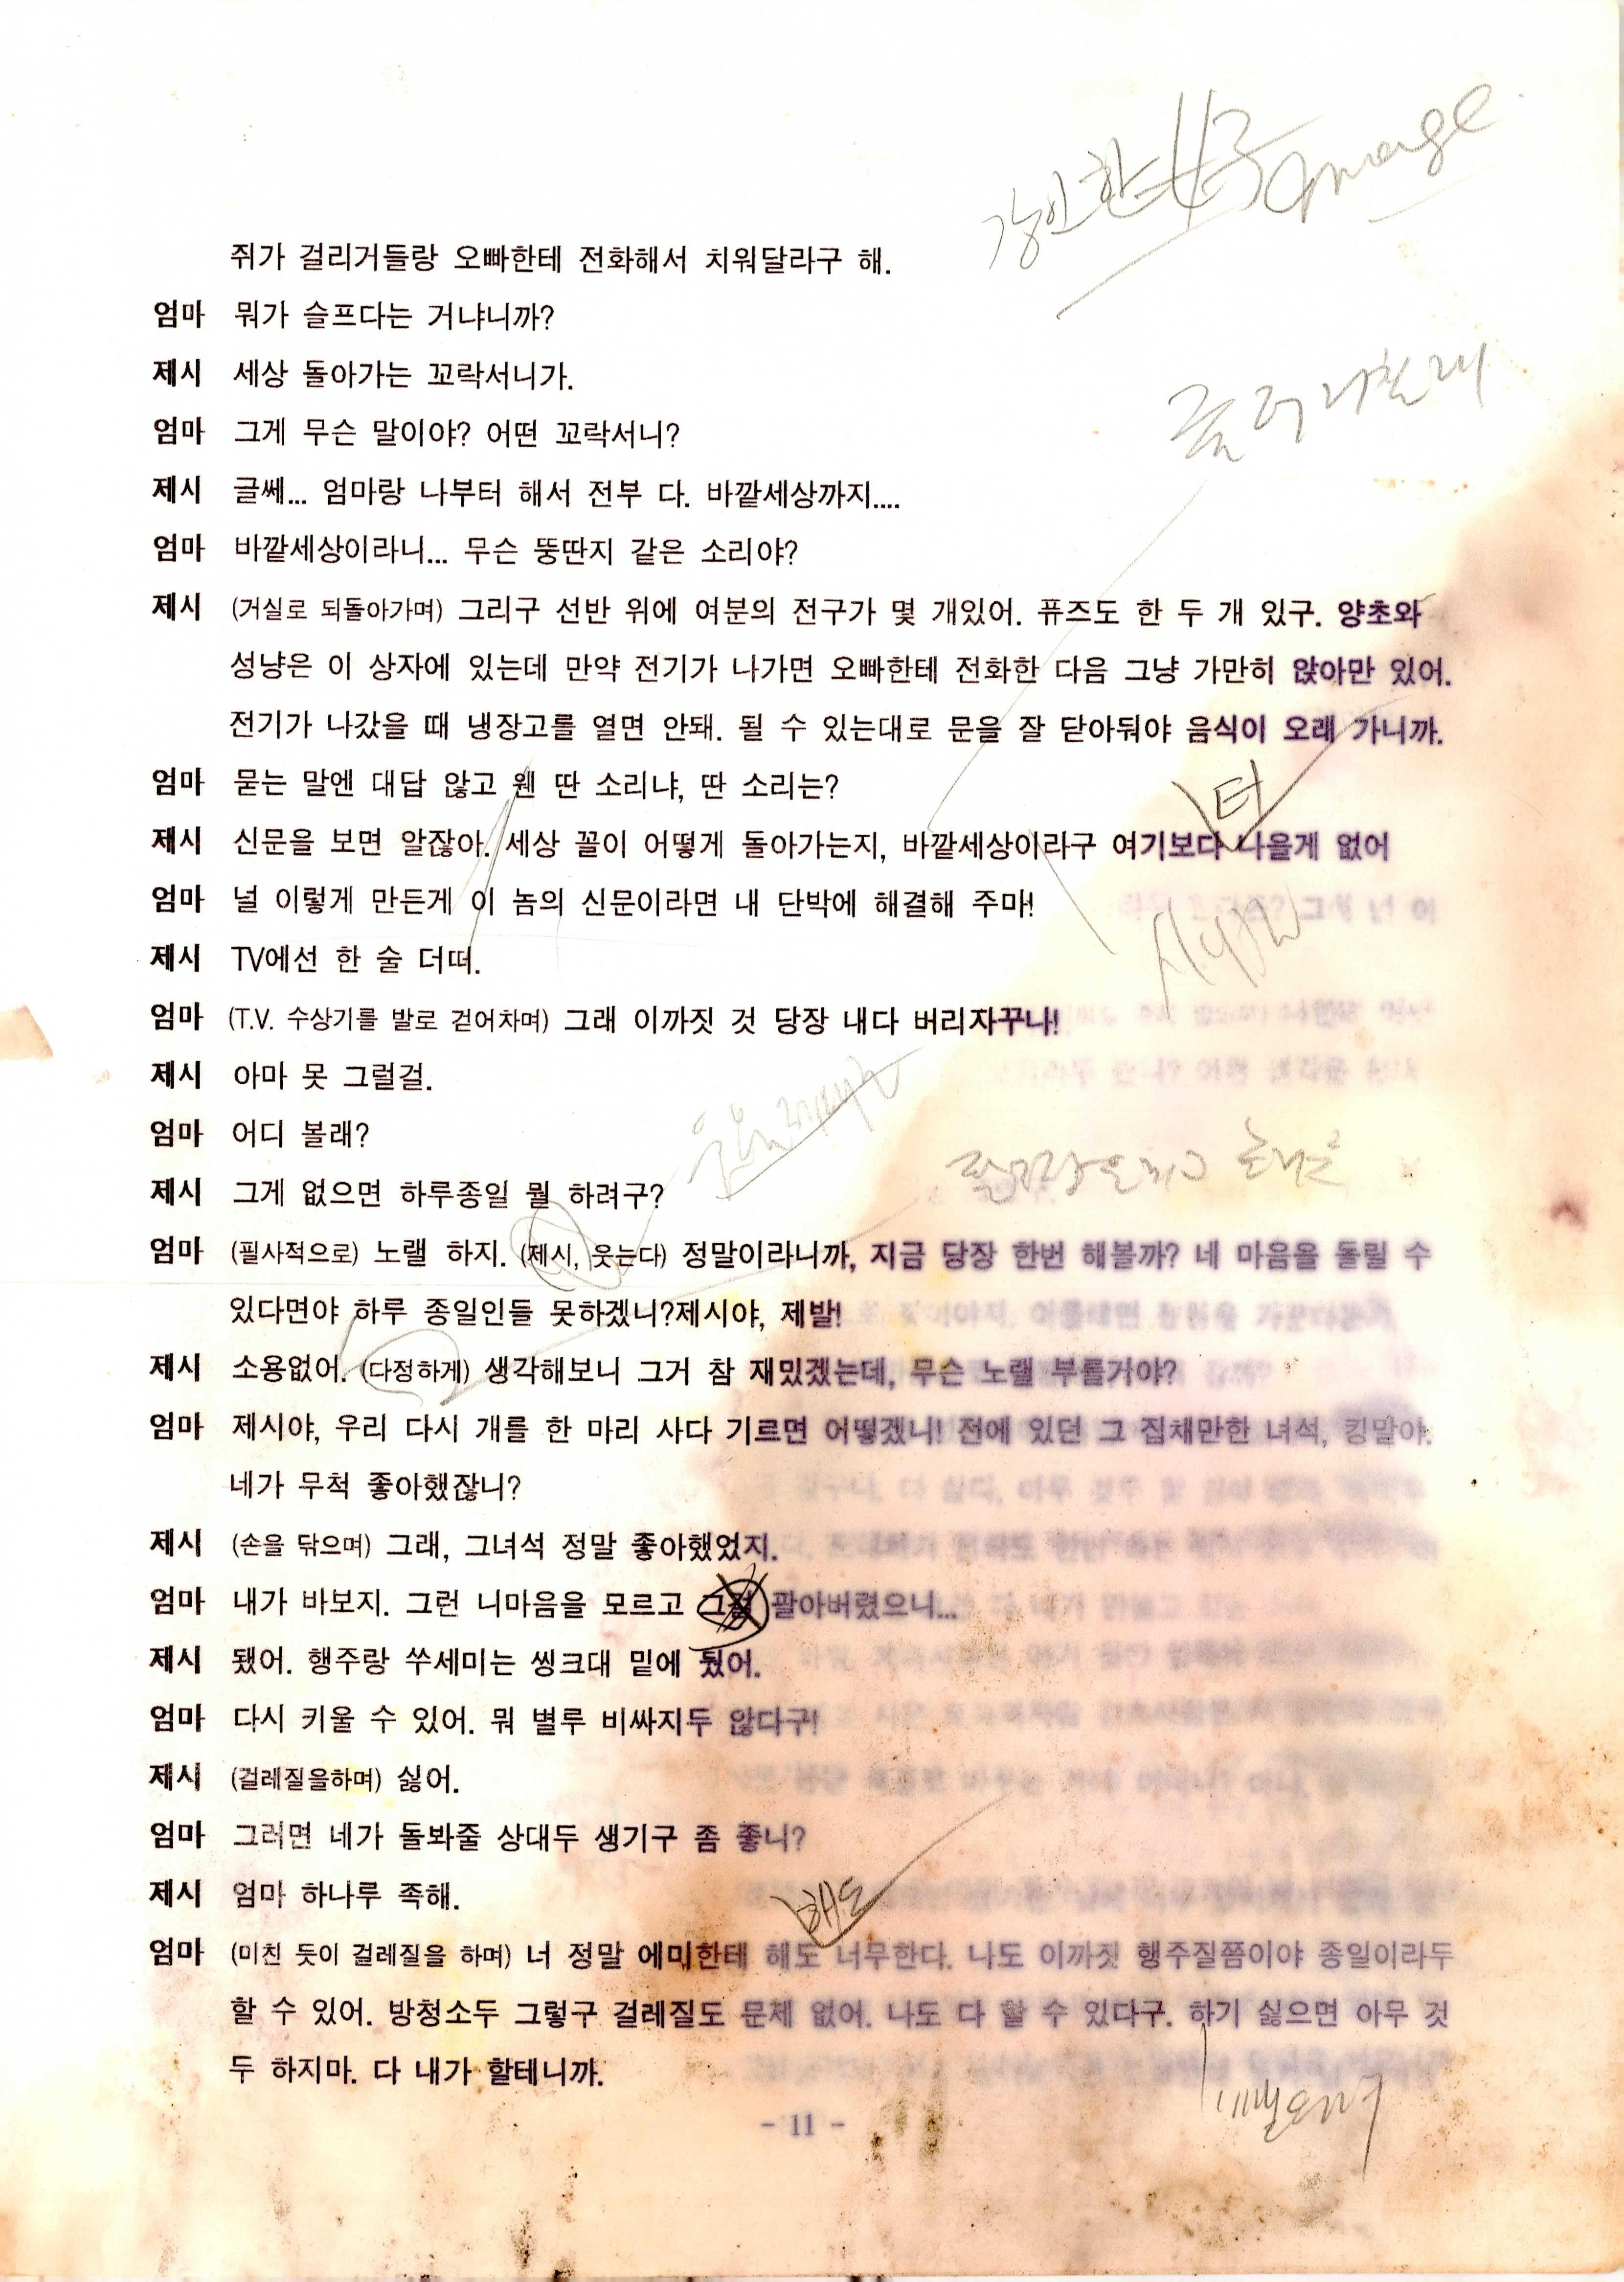 강인한 女子 image
쥐가 걸리거들랑 오빠한테 전화해서 치워달라구 해.
엄마 뭐가 슬프다는 거냐니까?
제시 세상 돌아가는 꼬락서니가.
엄마 그게 무슨 말이야? 어떤 꼬락서니?
제시 글쎄... 엄마랑 나부터 해서 전부 다. 바깥세상까지....
엄마 바깥세상이라니... 무슨 뚱딴지 같은 소리야?
제시 (거실로 되돌아가며) 그리구 선반 위에 여분의 전구가 몇 개있어. 퓨즈도 한 두 개 있구. 양초와
성냥은 이 상자에 있는데 만약 전기가 나가면 오빠한테 전화한 다음 그냥 가만히 앉아만 있어.
전기가 나갔을 때 냉장고를 열면 안돼. 될 수 있는대로 문을 잘 닫아둬야 음식이 오래 가니까.
엄마 묻는 말엔 대답 않고 웬 딴 소리냐, 딴 소리는?
터
제시 신문을 보면 알잖아. 세상 꼴이 어떻게 돌아가는지, 바깥세상이라구 여기보다 나을게 없어
엄마 널 이렇게 만든게 이 놈의 신문이라면 내 단박에 해결해 주마!
제시 TV에선 한 술 더떠.
엄마 (T.V. 수상기를 발로 걷어차며) 그래 이까짓 것 당장 내다 버리자꾸나!
제시 아마 못 그럴걸.
엄마 어디 볼래?
제시 그게 없으면 하루종일 뭘 하려구?
엄마 (필사적으로) 노랠 하지. (제시, 웃는다) 정말이라니까, 지금 당장 한번 해볼까? 네 마음을 돌릴 수
있다면야 하루 종일인들 못하겠니?제시야, 제발!
제시 소용없어. (다정하게) 생각해보니 그거 참 재밌겠는데, 무슨 노랠 부를거야?
엄마 제시야, 우리 다시 개를 한 마리 사다 기르면 어떻겠니! 전에 있던 그 집채만한 녀석, 킹말야.
네가 무척 좋아했잖니?
제시 (손을 닦으며) 그래, 그녀석 정말 좋아했었지.
엄마 내가 바보지. 그런 니마음을 모르고 그걸 팔아버렸으니...
제시 됐어. 행주랑 쑤세미는 씽크대 밑에 뒀어.
엄마 다시 키울 수 있어. 뭐 별루 비싸지두 않다구!
제시 (걸레질을하며) 싫어.
엄마 그러면 네가 돌봐줄 상대두 생기구 좀 좋니?
제시 엄마 하나루 족해.
해도
엄마 (미친 듯이 걸레질을 하며) 너 정말 에미한테 해도 너무한다. 나도 이까짓 행주질쯤이야 종일이라두
할 수 있어. 방청소두 그렇구 걸레질도 문제 없어. 나도 다 할 수 있다구. 하기 싫으면 아무 것
두 하지마. 다 내가 할테니까.
- 11 -